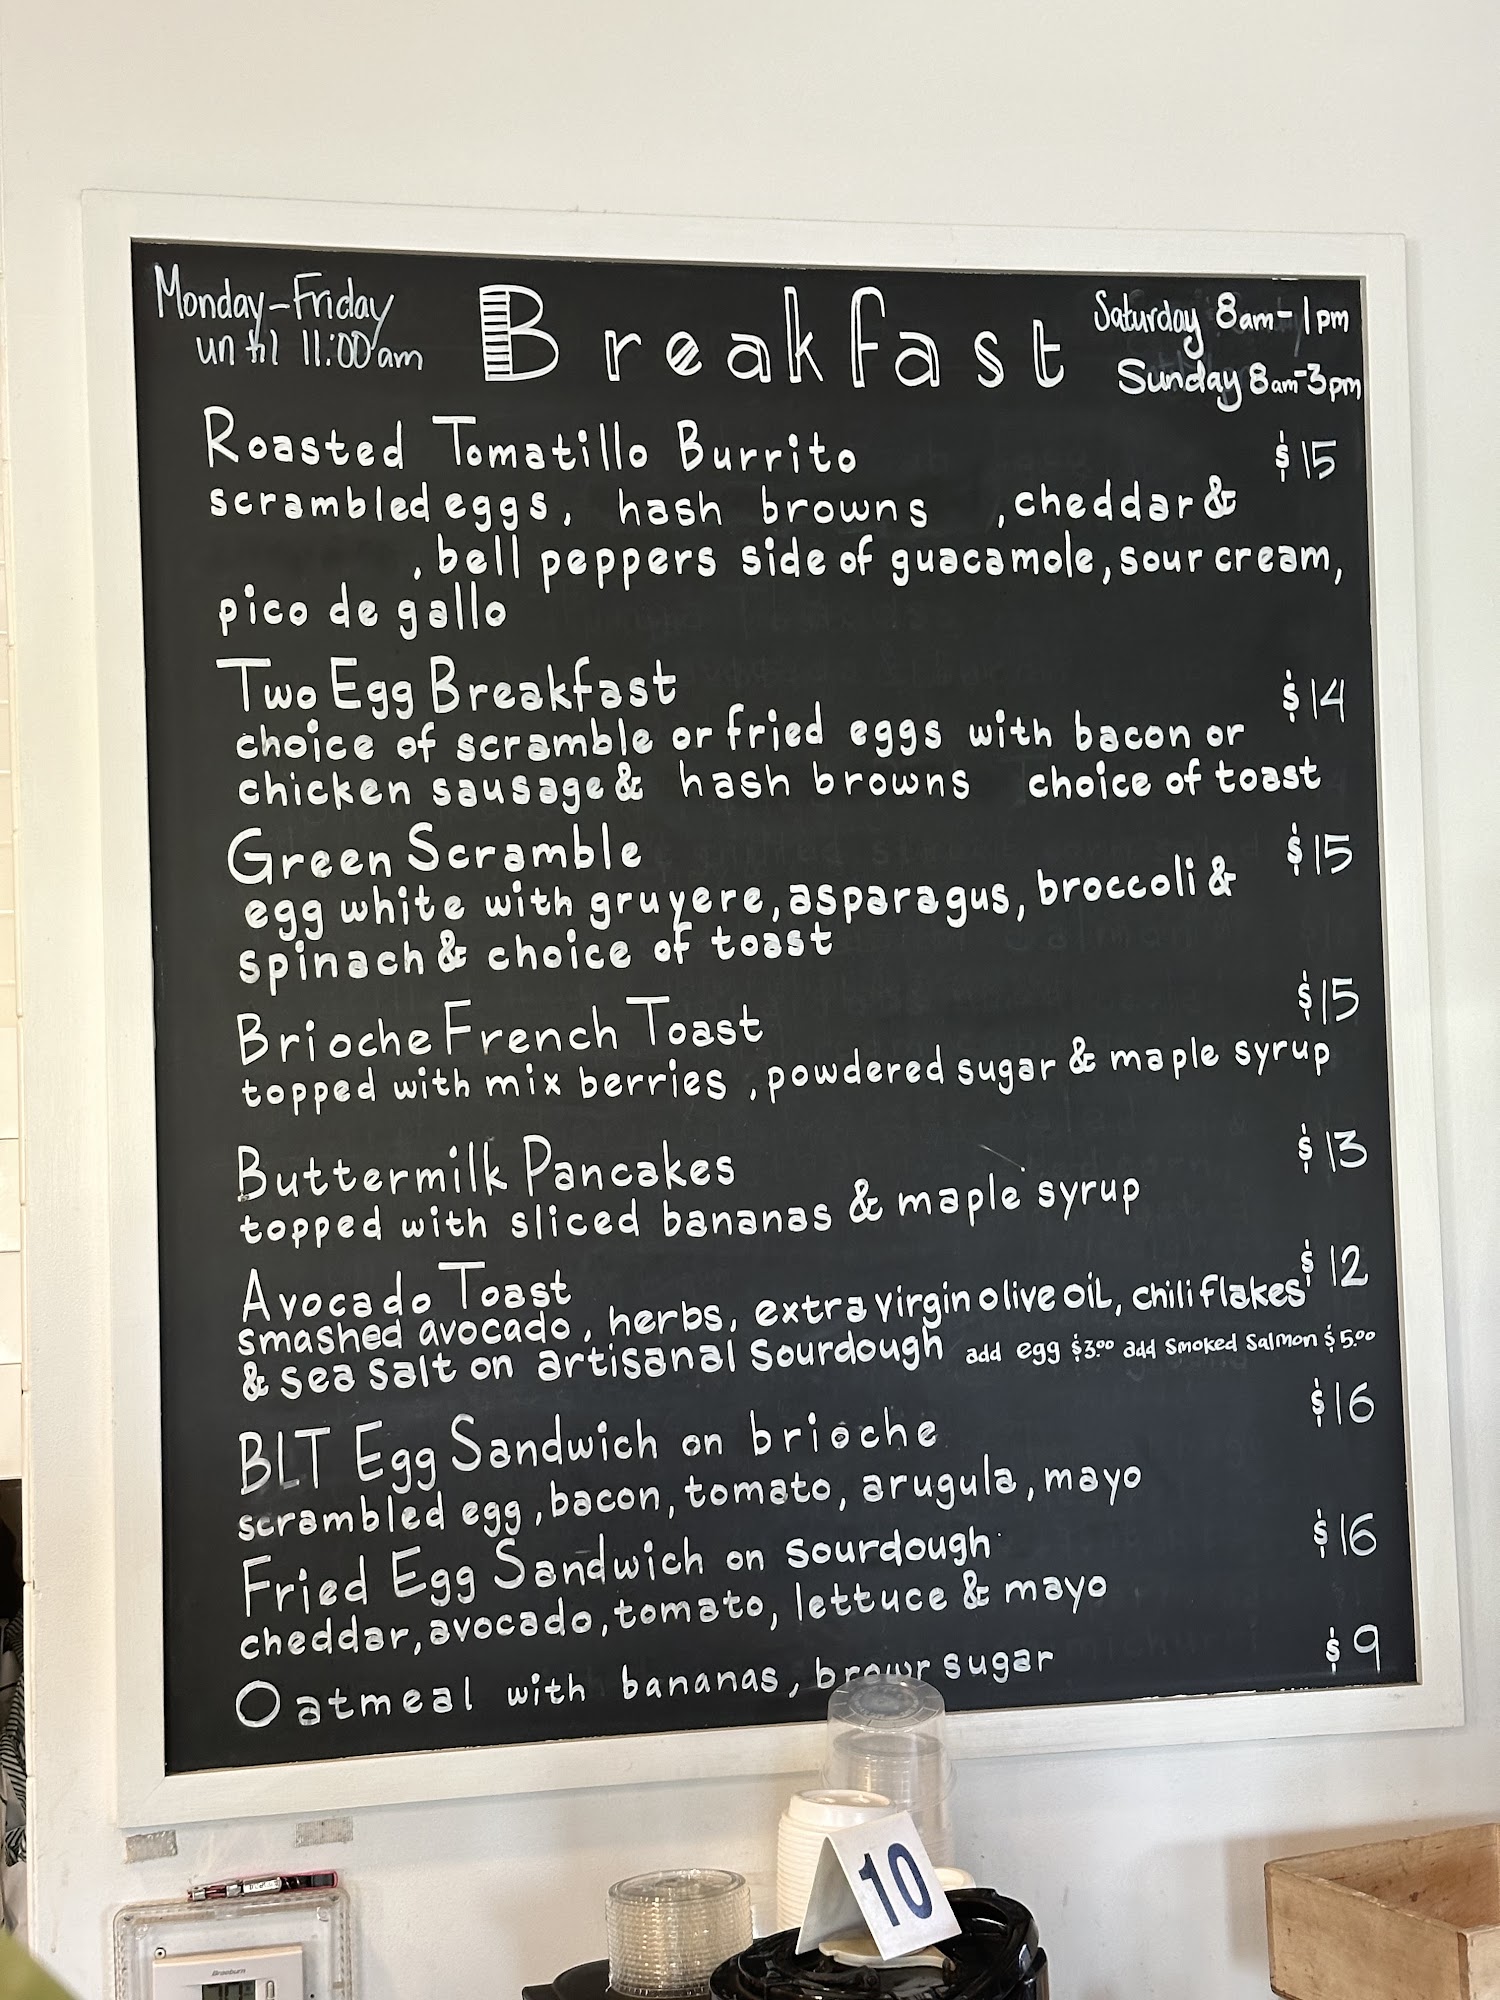 Monday-Friday
until 11:00am
Breakfast
Saturday 8am-1pm
Sunday 8am-3pm
Roasted Tomatillo Burrito $15
scrambled eggs, hash browns , cheddar &
, bell peppers side of guacamole, sour cream,
pico de gallo
Two Egg Breakfast $14
choice of scramble or fried eggs with bacon or
chicken sausage & hash browns choice of toast
Green Scramble $15
egg white with gruyere, asparagus, broccoli &
spinach & choice of toast
Brioche French Toast $15
topped with mix berries, powdered sugar & maple syrup
Buttermilk Pancakes $13
topped with sliced bananas & maple syrup
Avocado Toast $12
smashed avocado, herbs, extra virgin olive oil, chili flakes
& sea salt on artisanal sourdough add egg $3.00 add smoked salmon $5.00
BLT Egg Sandwich on brioche $16
scrambled egg, bacon, tomato, arugula, mayo
Fried Egg Sandwich on sourdough $16
cheddar, avocado, tomato, lettuce & mayo
Oatmeal with bananas, brown sugar $9
10
Braeburn